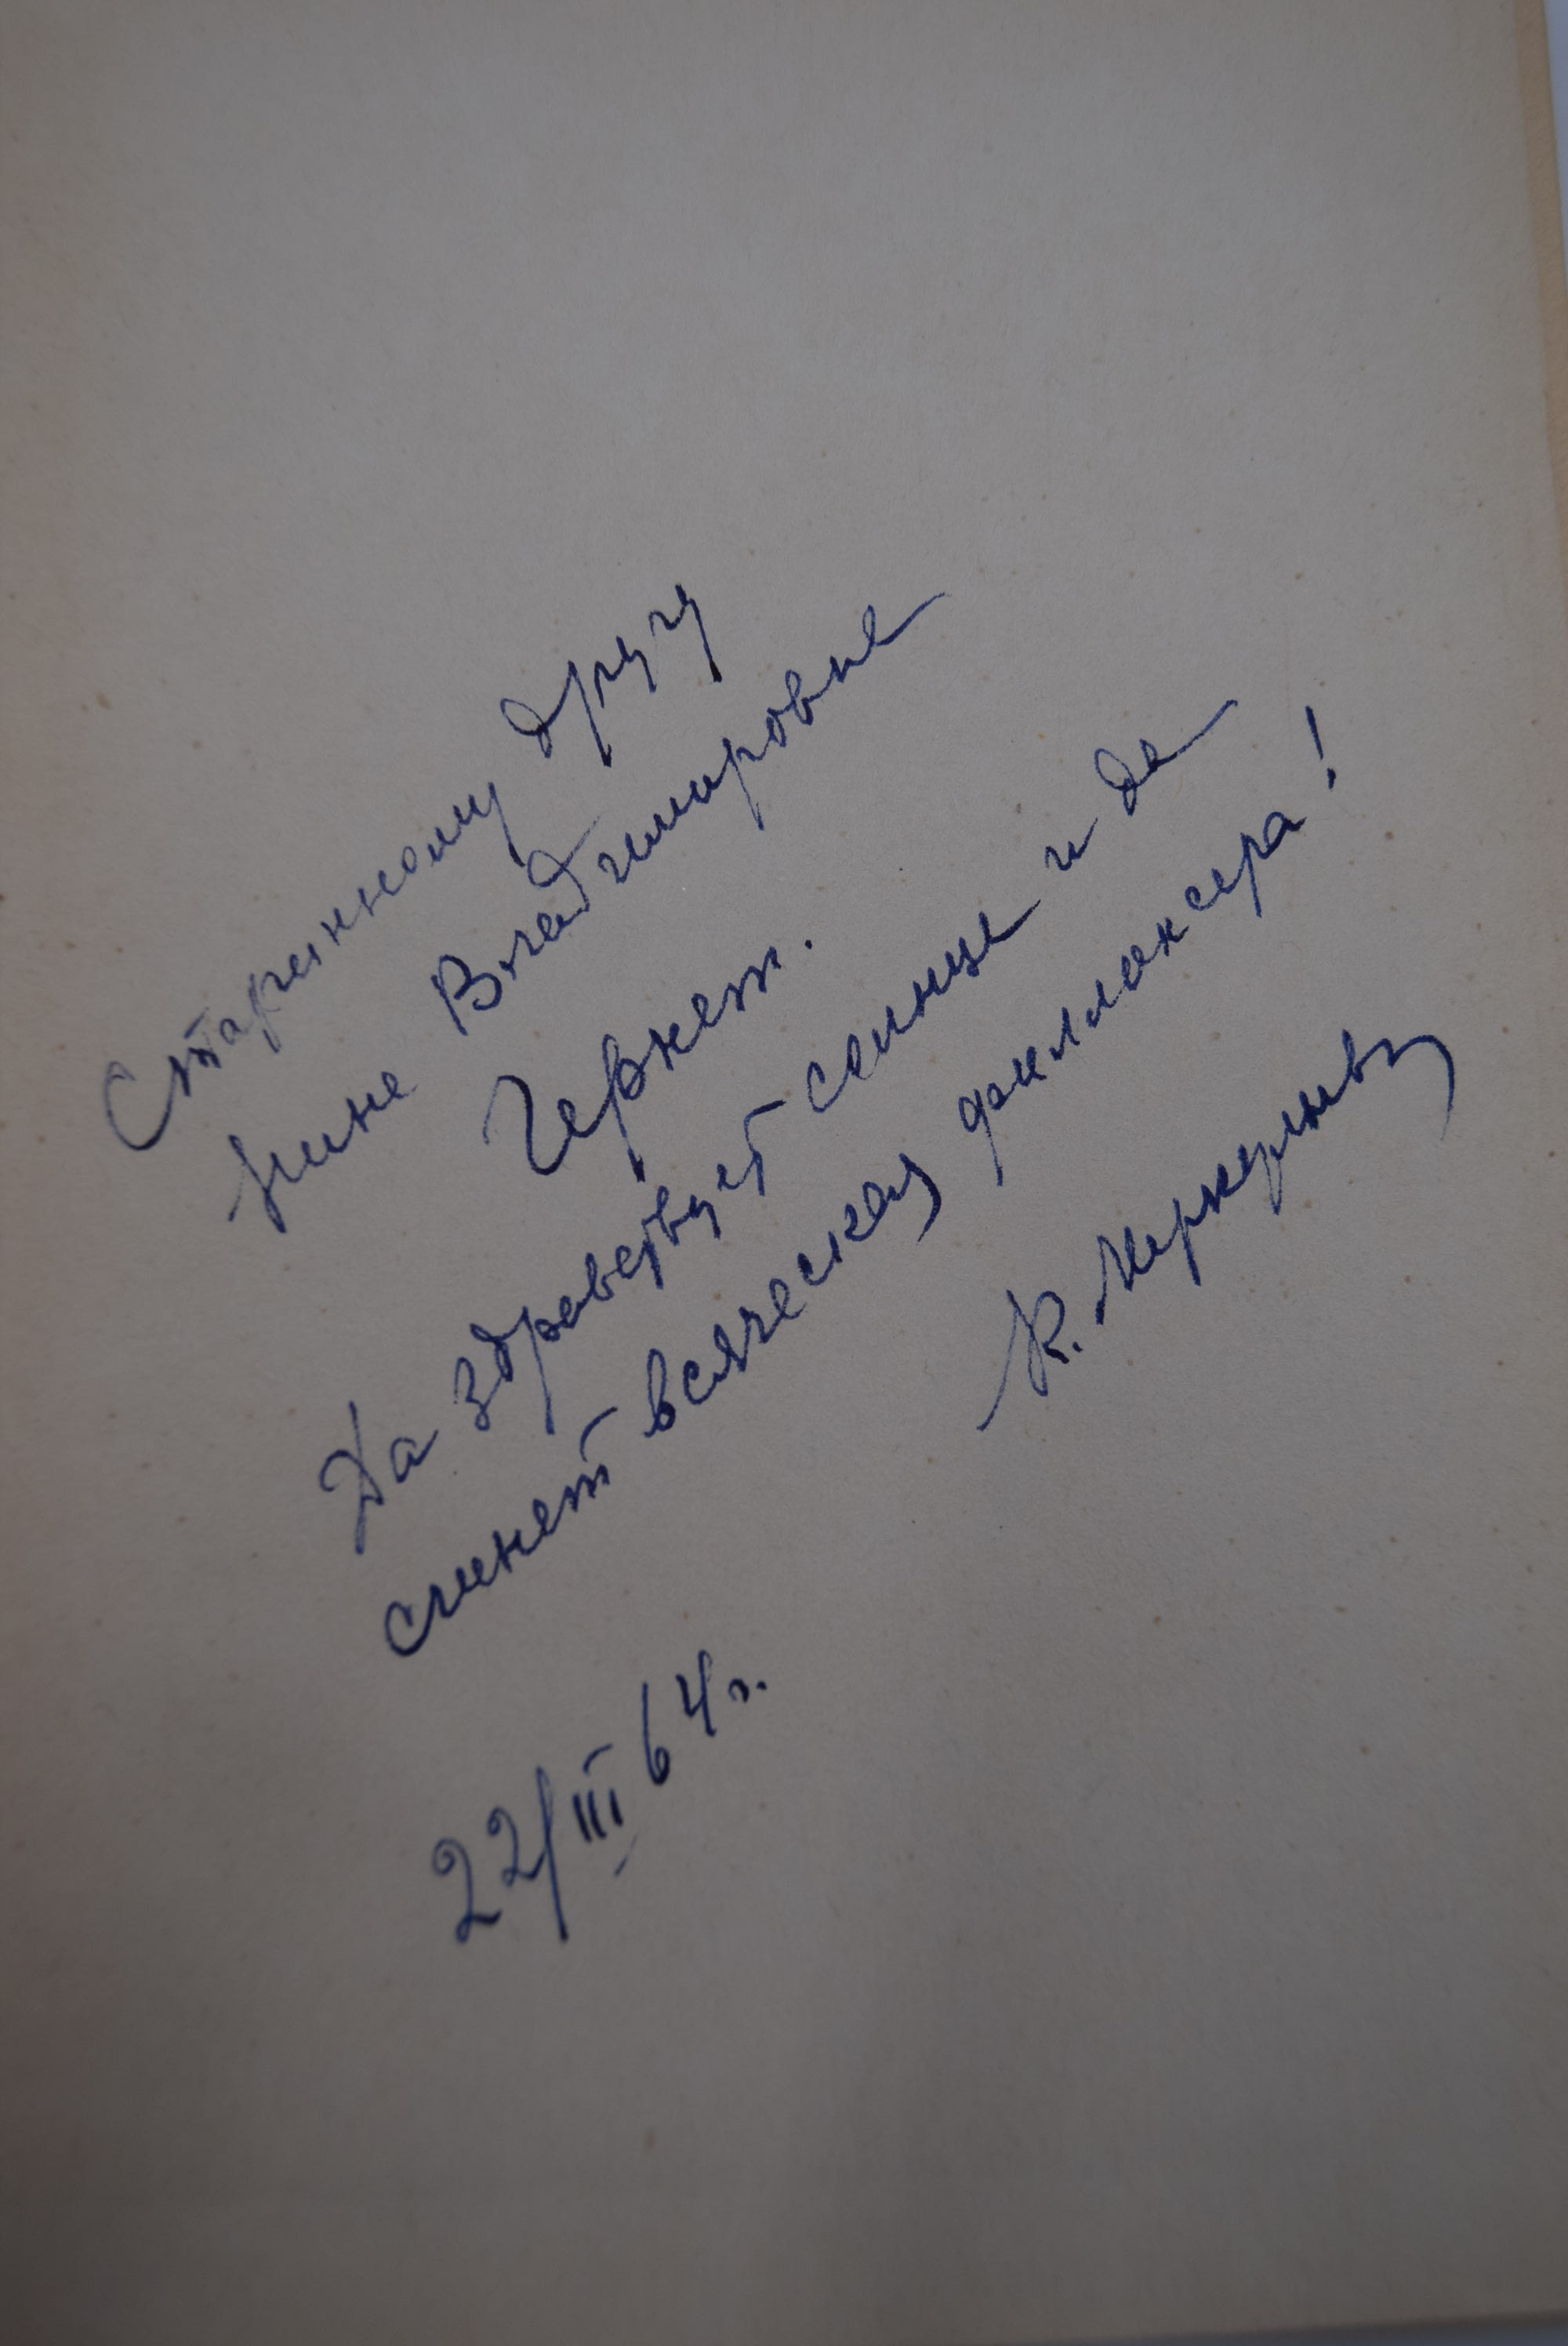 Старинному другу
Нине Владимировне
Гернет.
Да здравствует солнце и да
сгинет всяческая филлоксера!
К. Меркульева
22/III 64 г.